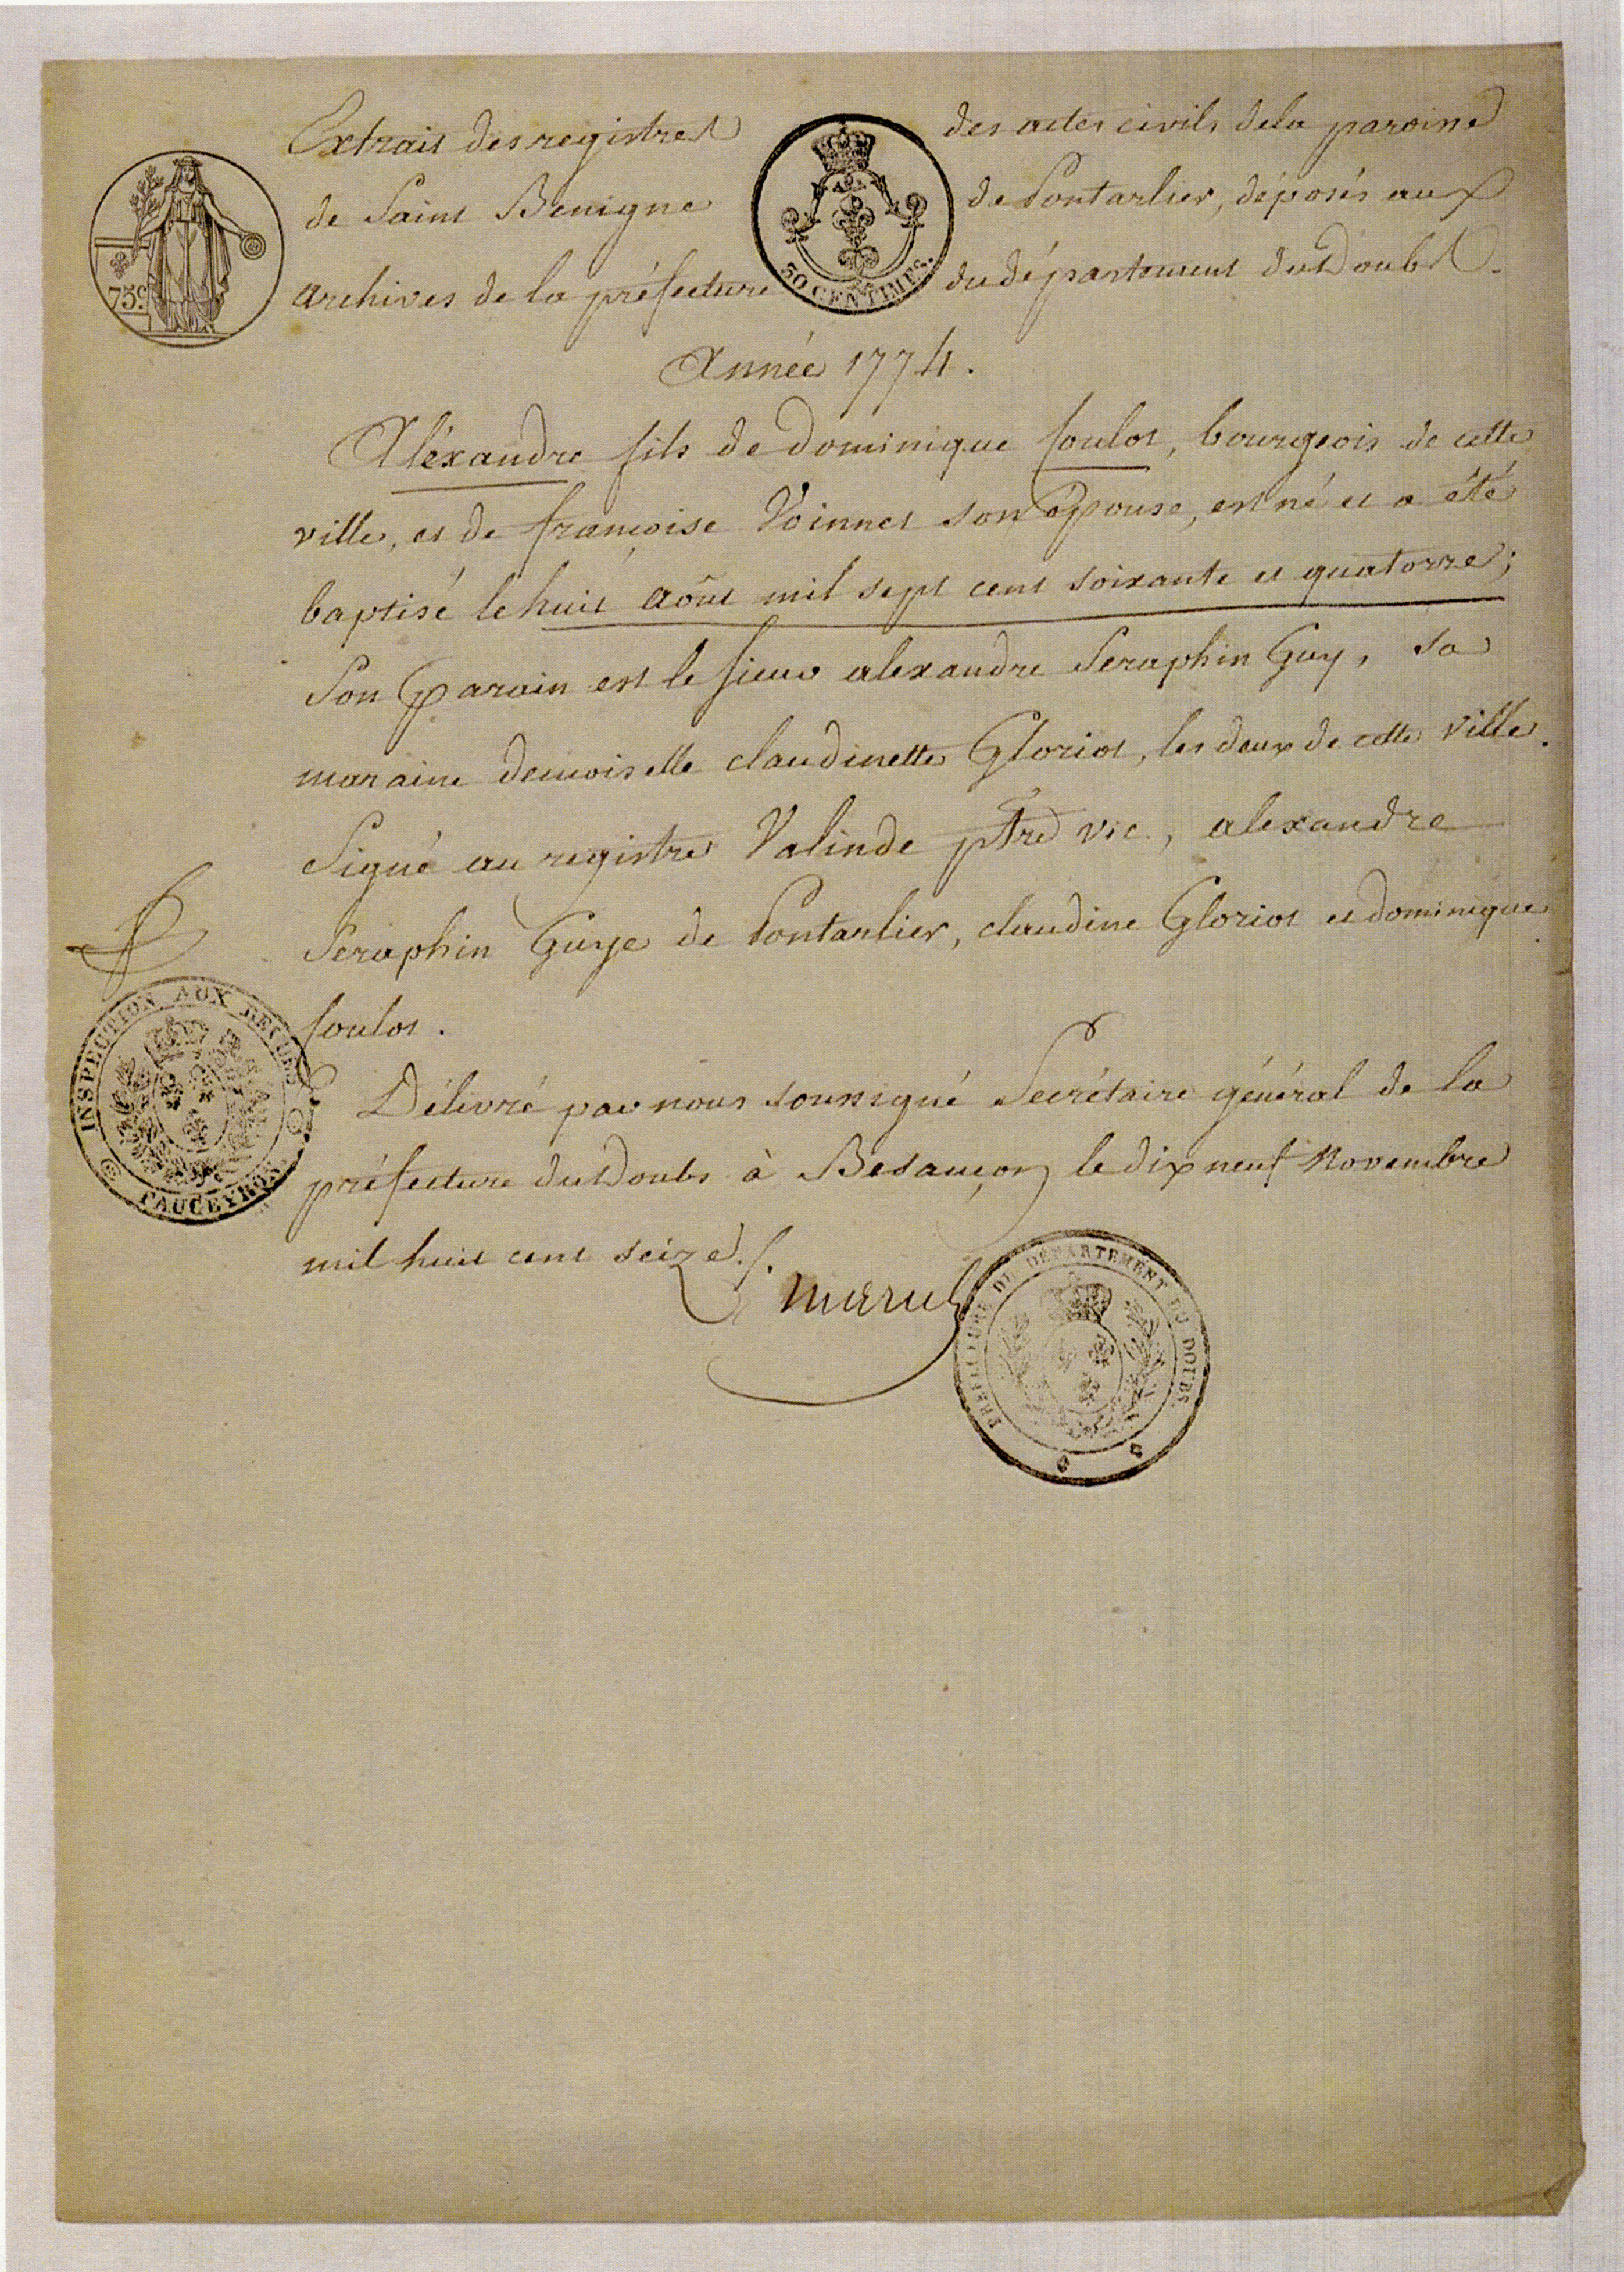 Extrait des registres des actes civils de la paroisse
de Saint Benigne de Pontarlier, déposés aux
archives de la préfecture du département du Doubs.
75c.
30 CENTIMES.
Année 1774.
Aléxandre fils de Dominique foulot, bourgeois de cette
ville, et de françoise Voinnet son épouse, est né et a été
baptisé le huit août mil sept cent soixante et quatorze;
Son parain est le sieur alexandre Seraphin Guy, sa
maraine demoiselle claudinette Gloriot, les deux de cette ville.
Signé au registre Valinde ptre vic, alexandre
Seraphin Guye de Pontarlier, claudine Gloriot et dominique
foulot.
INSPECTION AUX REVUES
FAUCEYRON
Délivré par nous soussigné Secrétaire général de la
préfecture du Doubs à Besançon le dix neuf Novembre
mil huit cent seize./.
PREFECTURE DU DÉPARTEMENT DU DOUBS